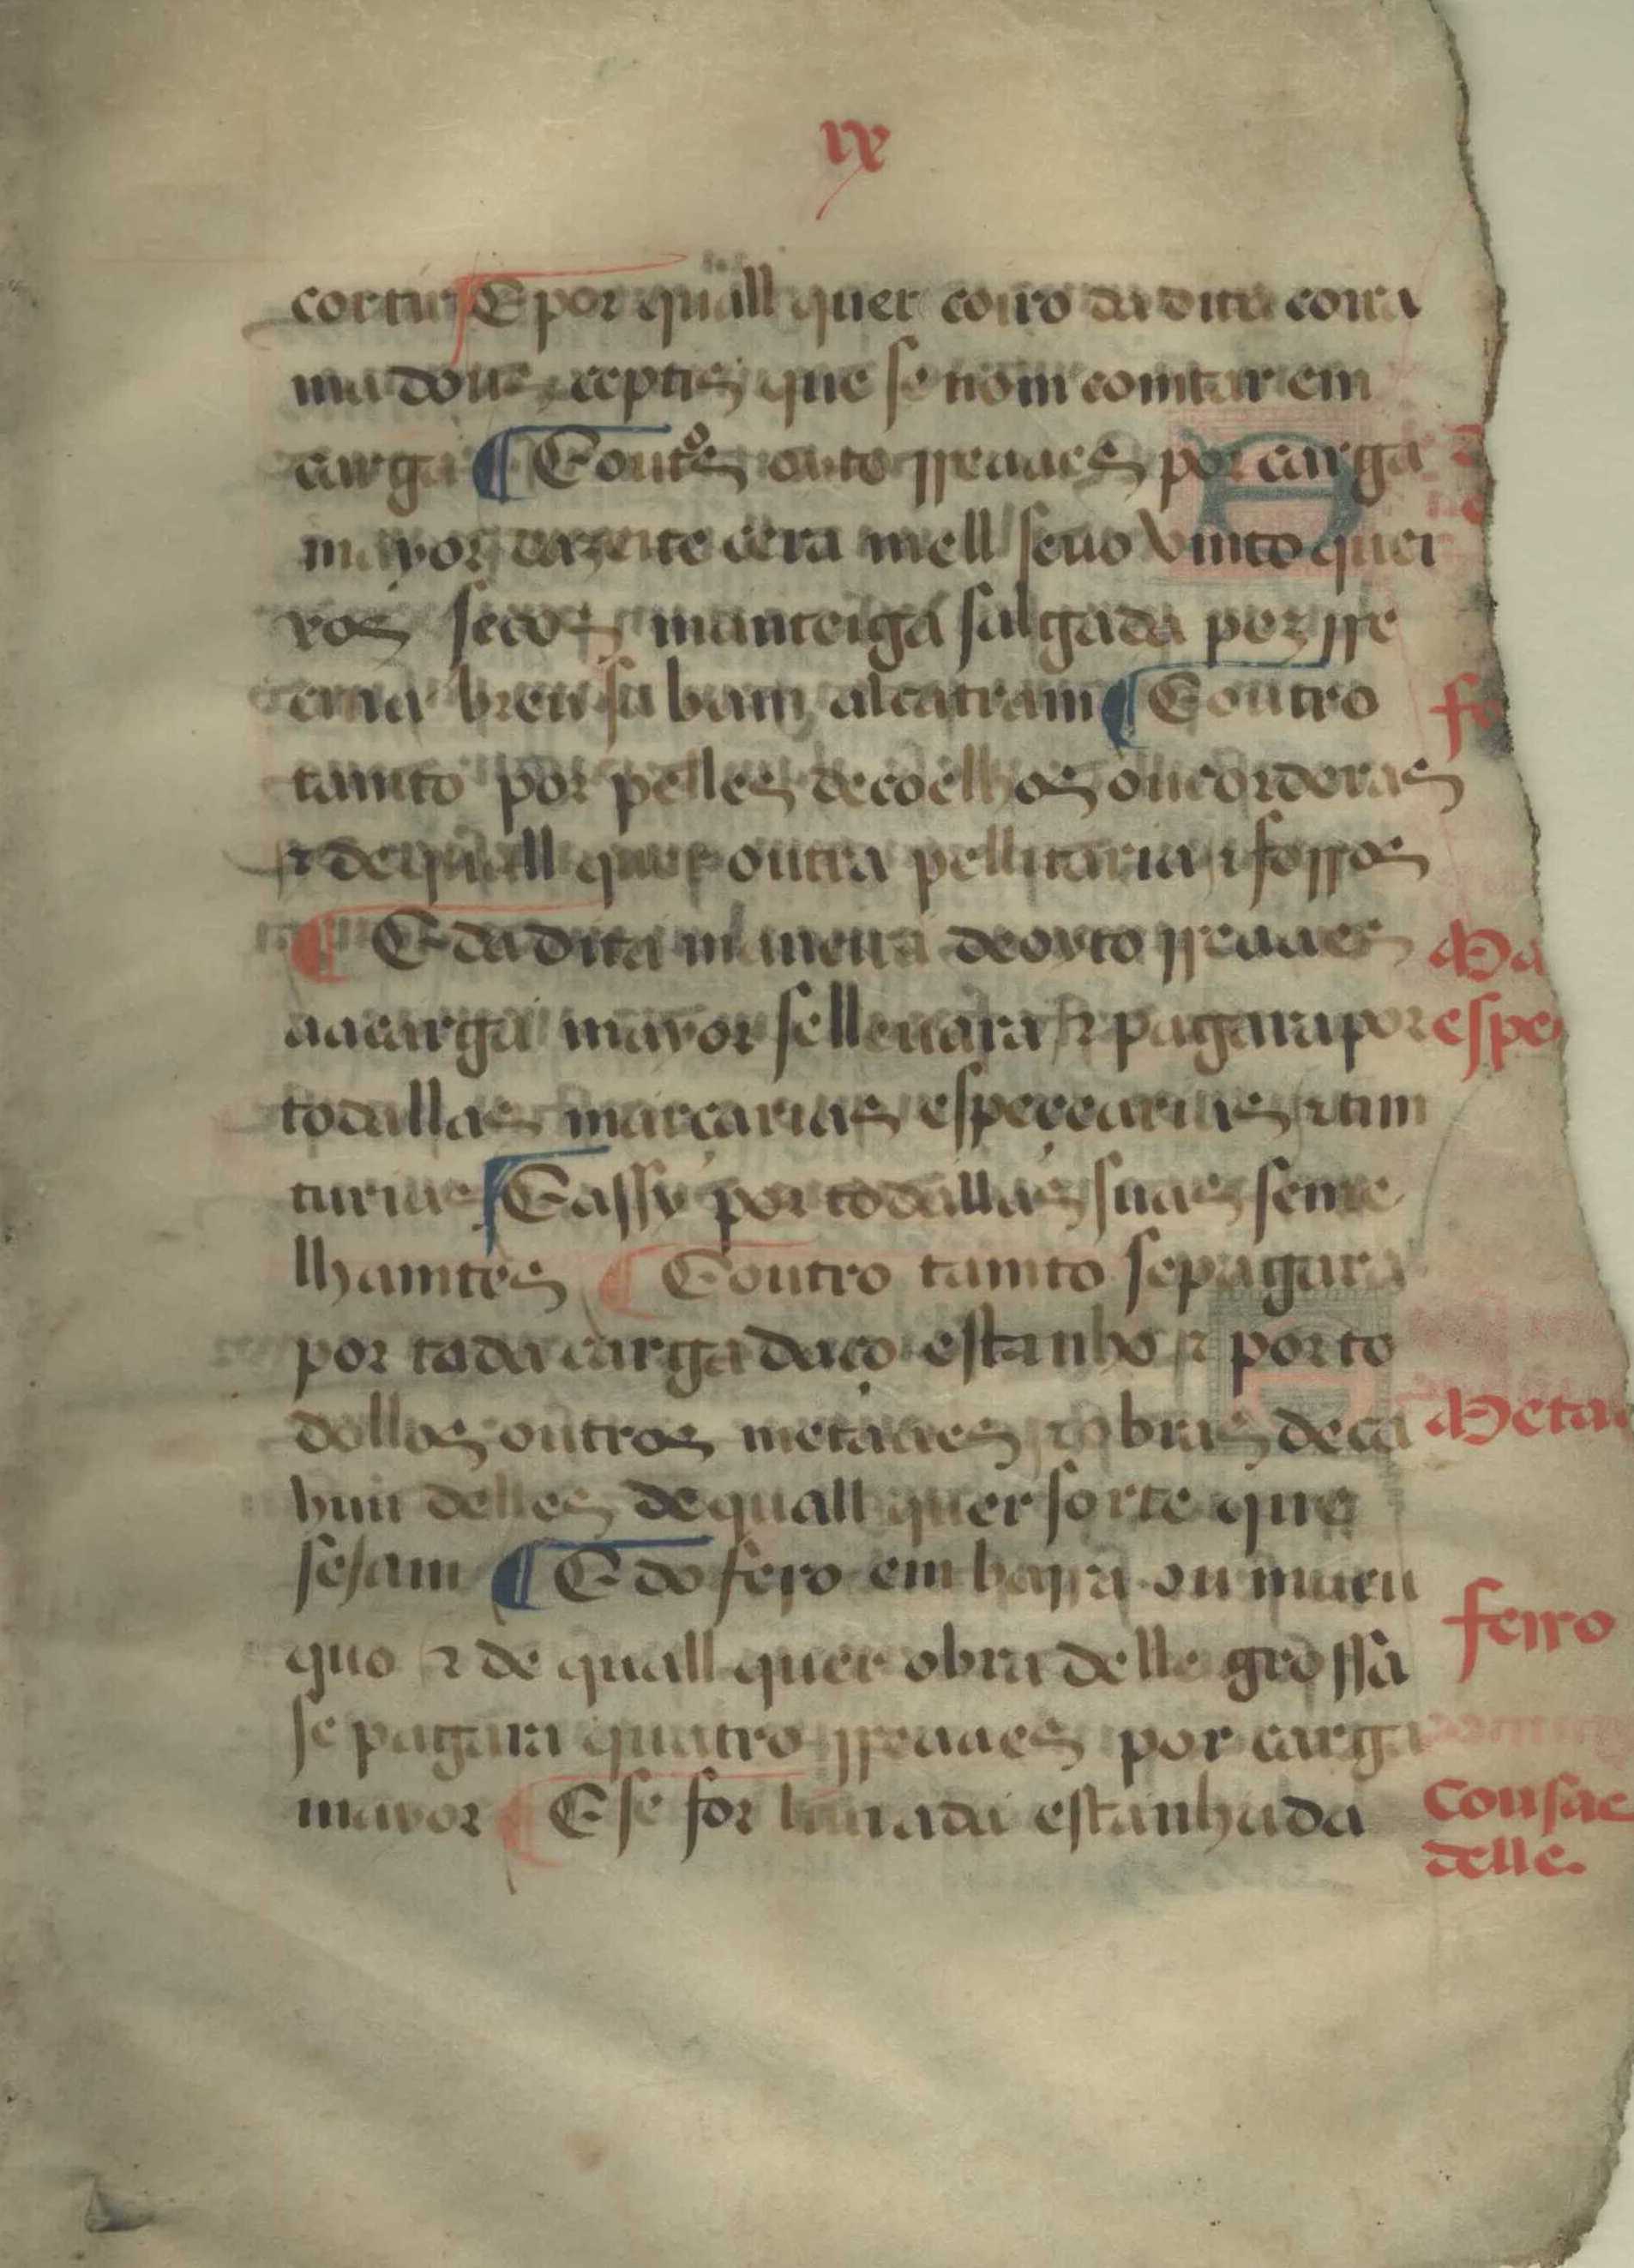 ix
cortir E por quall quer coiro da dita coira
ma dous ceptis que se nom comtar em
carga ¶ E outºs outo rreaaes por carga
mayor dazeite cera mell sevo vnito quei
yos secos manteiga salgada pez rre
ema breu sabam alcatram ¶ E outro
tamto por pelles de coelhos ou corderas
⁊ de quall quer outra pellitaria ⁊ forros
¶ E da dita maneira de oyto rreaaes
aa carga mayor se lleuara ⁊ pagara por
espe
todallas marçarias espeçearias ⁊ tim
turias E assy por todallas suas seme
lhamtes ¶ E outro tamto se pagara
por toda carga daço estanho ⁊ por to
dollos outros metaaes ⁊ obras de ca
Meta
huu delles de quall quer sorte que
sejam ¶ E do fero em barra ou maeu
ferro
quo ⁊ de quall quer obra delle grossa
se pagara quatro rreaaes por carga
mayor ¶ E se for limada estanhada
Cousas
delle.